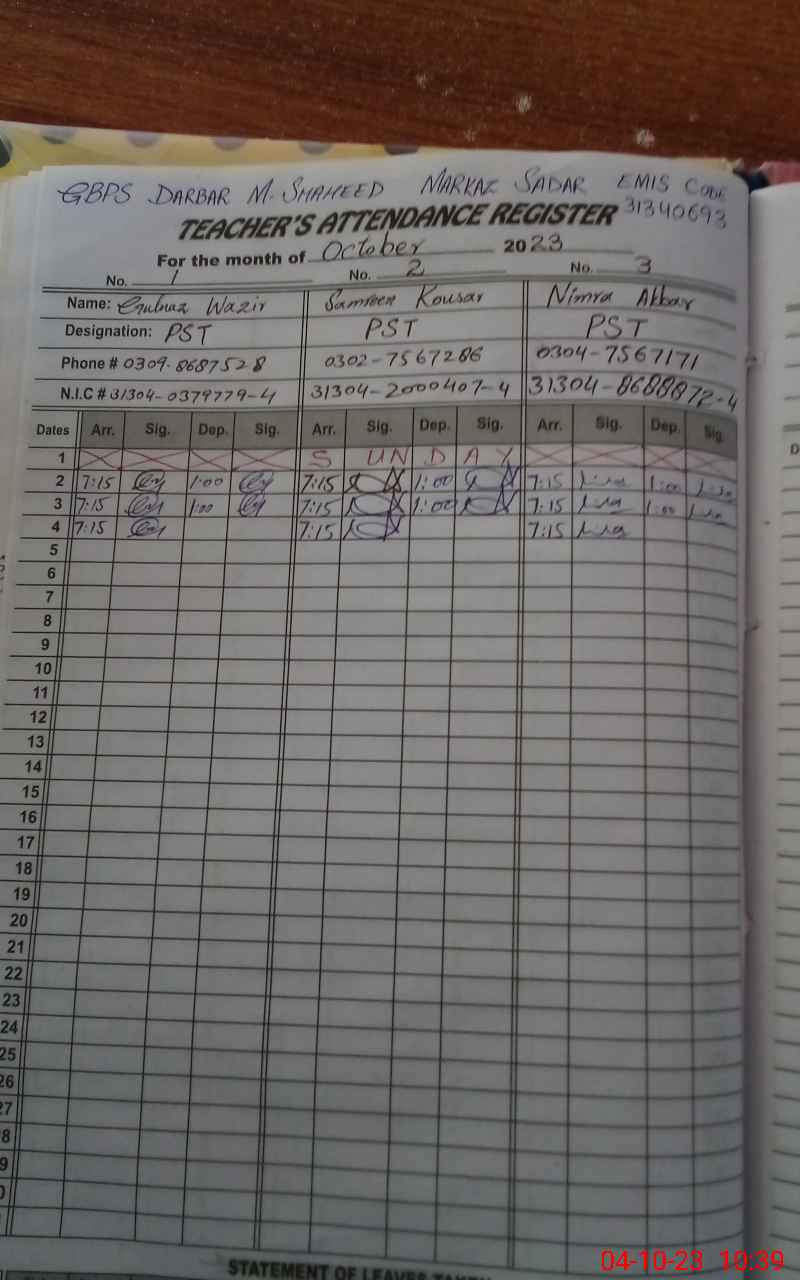 GBPS DARBAR M. SHAHEED MARKAZ SADAR EMIS CODE
31340693
TEACHER'S ATTENDANCE REGISTER
For the month of October 2023
No. 1 No. 2 No. 3
Name: Gulnaz Wazir Samreen Kousar Nimra Akbar
Designation: PST PST PST
Phone # 0309-8687528 0302-7567286 0304-7567171
N.I.C # 31304-0379779-4 31304-2000407-4 31304-8688872-4
Dates Arr. Sig. Dep. Sig. Arr. Sig. Dep. Sig. Arr. Sig. Dep. Sig.
1 SUNDAY
2 7:15 1:00 7:15 1:00 7:15 1:00
3 7:15 1:00 7:15 1:00 7:15 1:00
4 7:15 7:15 7:15
5
6
7
8
9
10
11
12
13
14
15
16
17
18
19
20
21
22
23
24
25
26
27
8
9
0
STATEMENT OF LEAVES TAKEN
04-10-23 10:39